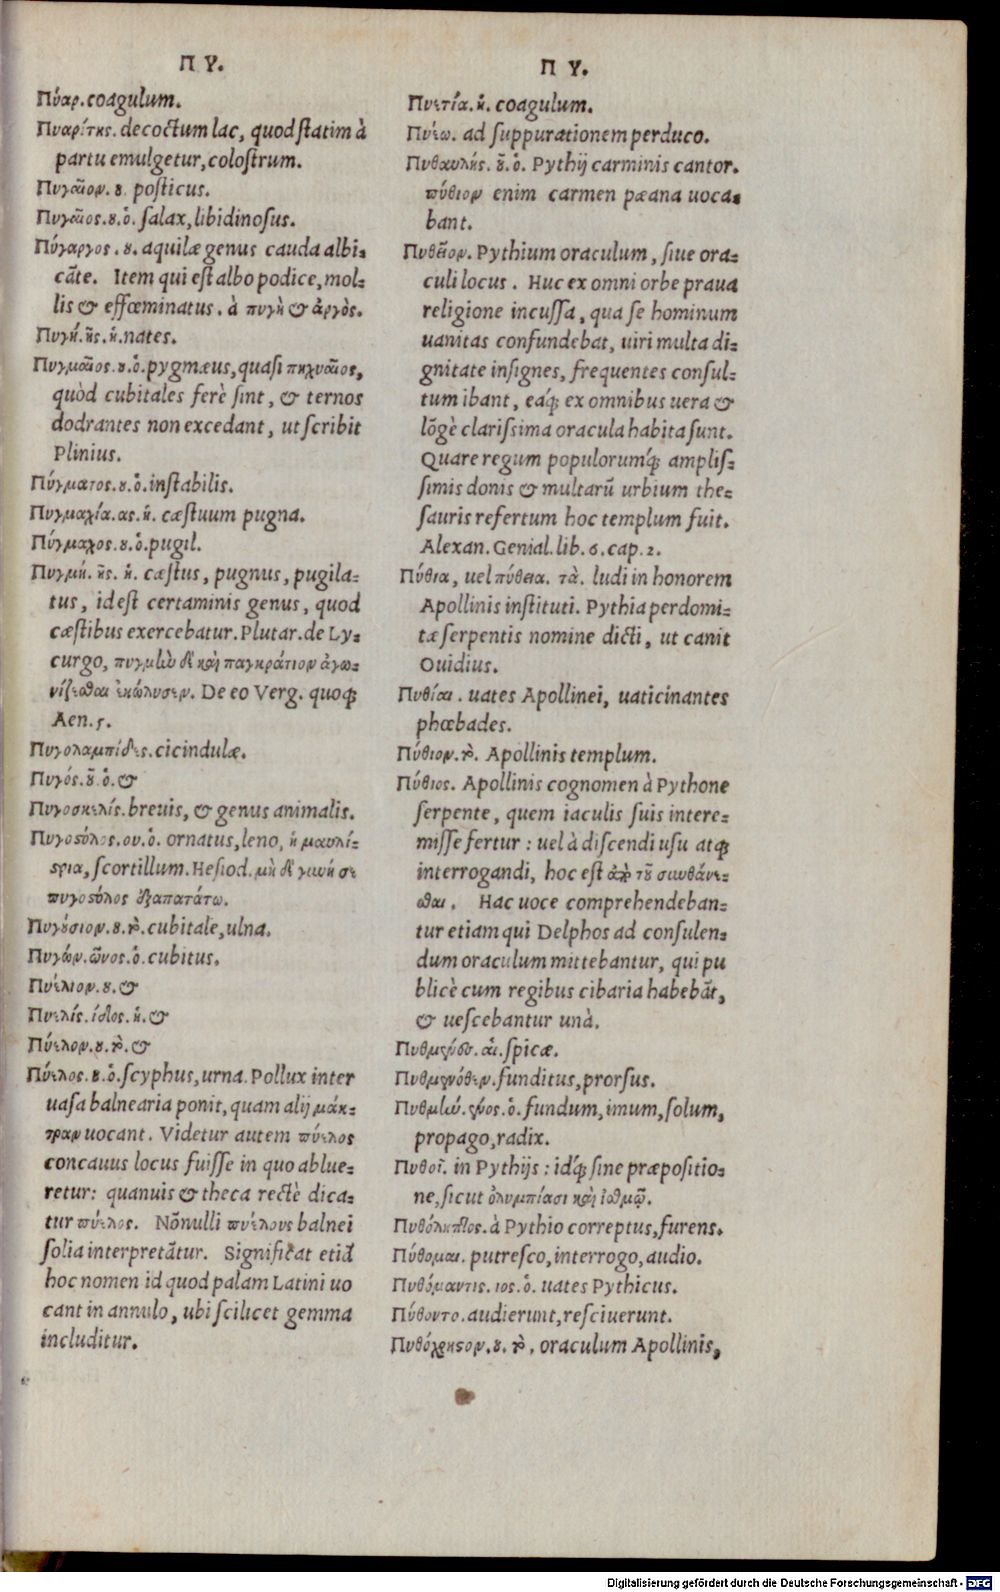 Π Υ.
Πύαρ. coagulum.
Πυαρίτης. decoctum lac, quod statim à
partu emulgetur, colostrum.
Πυγαῖον. ου. posticus.
Πυγαῖος. ου. ὁ. salax, libidinosus.
Πύγαργος. ου. aquilæ genus cauda albi-
cãte. Item qui est albo podice, mol-
lis & effœminatus. à πυγὴ & ἀργὸς.
Πυγή. ῆς. ἡ. nates.
Πυγμαῖος. ου. ὁ. pygmæus, quasi πηχυαῖος,
quòd cubitales ferè sint, & ternos
dodrantes non excedant, ut scribit
Plinius.
Πύγματος. ου. ὁ. instabilis.
Πυγμαχία. ας. ἡ. cæstuum pugna.
Πύγμαχος. ου. ὁ. pugil.
Πυγμή. ῆς. ἡ. cæstus, pugnus, pugila-
tus, id est certaminis genus, quod
cæstibus exercebatur. Plutar. de Ly-
curgo, πυγμὴν δὲ καὶ παγκράτιον ἀγω-
νίζεσθαι ἐκώλυσεν. De eo Verg. quoq;
Aen. 5.
Πυγολαμπίδες. cicindulæ.
Πυγός. οῦ. ὁ. &
Πυγοσκελίς. breuis, & genus animalis.
Πυγοστόλος. ου. ὁ. ornatus, leno, ἡ μαυλί-
στρια, scortillum. Hesiod. μὴ δὲ γυνή σε
πυγοστόλος ἐξαπατάτω.
Πυγούσιον. ου. τὸ. cubitale, ulna.
Πυγών. ῶνος. ὁ. cubitus.
Πυέλιον. ου. &
Πυελίς. ίδος. ἡ. &
Πύελον. ου. τὸ. &
Πύελος. ου. ὁ. scyphus, urna. Pollux inter
uasa balnearia ponit, quam alij μάκ-
τραν uocant. Videtur autem πύελος
concauus locus fuisse in quo ablue-
retur: quanuis & theca rectè dica-
tur πύελος. Nõnulli πυέλους balnei
solia interpretãtur. Significat etiã
hoc nomen id quod palam Latini uo
cant in annulo, ubi scilicet gemma
includitur.
Π Υ.
Πυετία. ἡ. coagulum.
Πυέω. ad suppurationem perduco.
Πυθαυλής. οῦ. ὁ. Pythij carminis cantor.
πύθιον enim carmen pæana uoca-
bant.
Πυθεῖον. Pythium oraculum, siue ora-
culi locus. Huc ex omni orbe praua
religione incussa, qua se hominum
uanitas confundebat, uiri multa di-
gnitate insignes, frequentes consul-
tum ibant, eáq; ex omnibus uera &
lõgè clarissima oracula habita sunt.
Quare regum populorumq́; amplis-
simis donis & multarũ urbium the-
sauris refertum hoc templum fuit.
Alexan. Genial. lib. 6. cap. 2.
Πύθια, uel πύθεια. τὰ. ludi in honorem
Apollinis instituti. Pythia perdomi-
tæ serpentis nomine dicti, ut canit
Ouidius.
Πυθίαι. uates Apollinei, uaticinantes
phœbades.
Πύθιον. τὸ. Apollinis templum.
Πύθιος. Apollinis cognomen à Pythone
serpente, quem iaculis suis intere-
misse fertur: uel à discendi usu atq;
interrogandi, hoc est ἀπὸ τοῦ συνθάνε-
σθαι. Hac uoce comprehendeban-
tur etiam qui Delphos ad consulen-
dum oraculum mittebantur, qui pu
blicè cum regibus cibaria habebãt,
& uescebantur unà.
αἱ. spicæ.
Πυθμενόθεν. funditus, prorsus.
Πυθμήν. ένος. ὁ. fundum, imum, solum,
propago, radix.
Πυθοῖ. in Pythijs: idq́; sine præpositio-
ne, sicut ὀλυμπίασι καὶ ἰσθμῷ.
Πυθόληπτος. à Pythio correptus, furens.
Πύθομαι. putresco, interrogo, audio.
Πυθόμαντις. ιος. ὁ. uates Pythicus.
Πύθοντο. audierunt, resciuerunt.
Πυθόχρηστον. ου. τὸ. oraculum Apollinis,
Digitalisierung gefördert durch die Deutsche Forschungsgemeinschaft - DFG